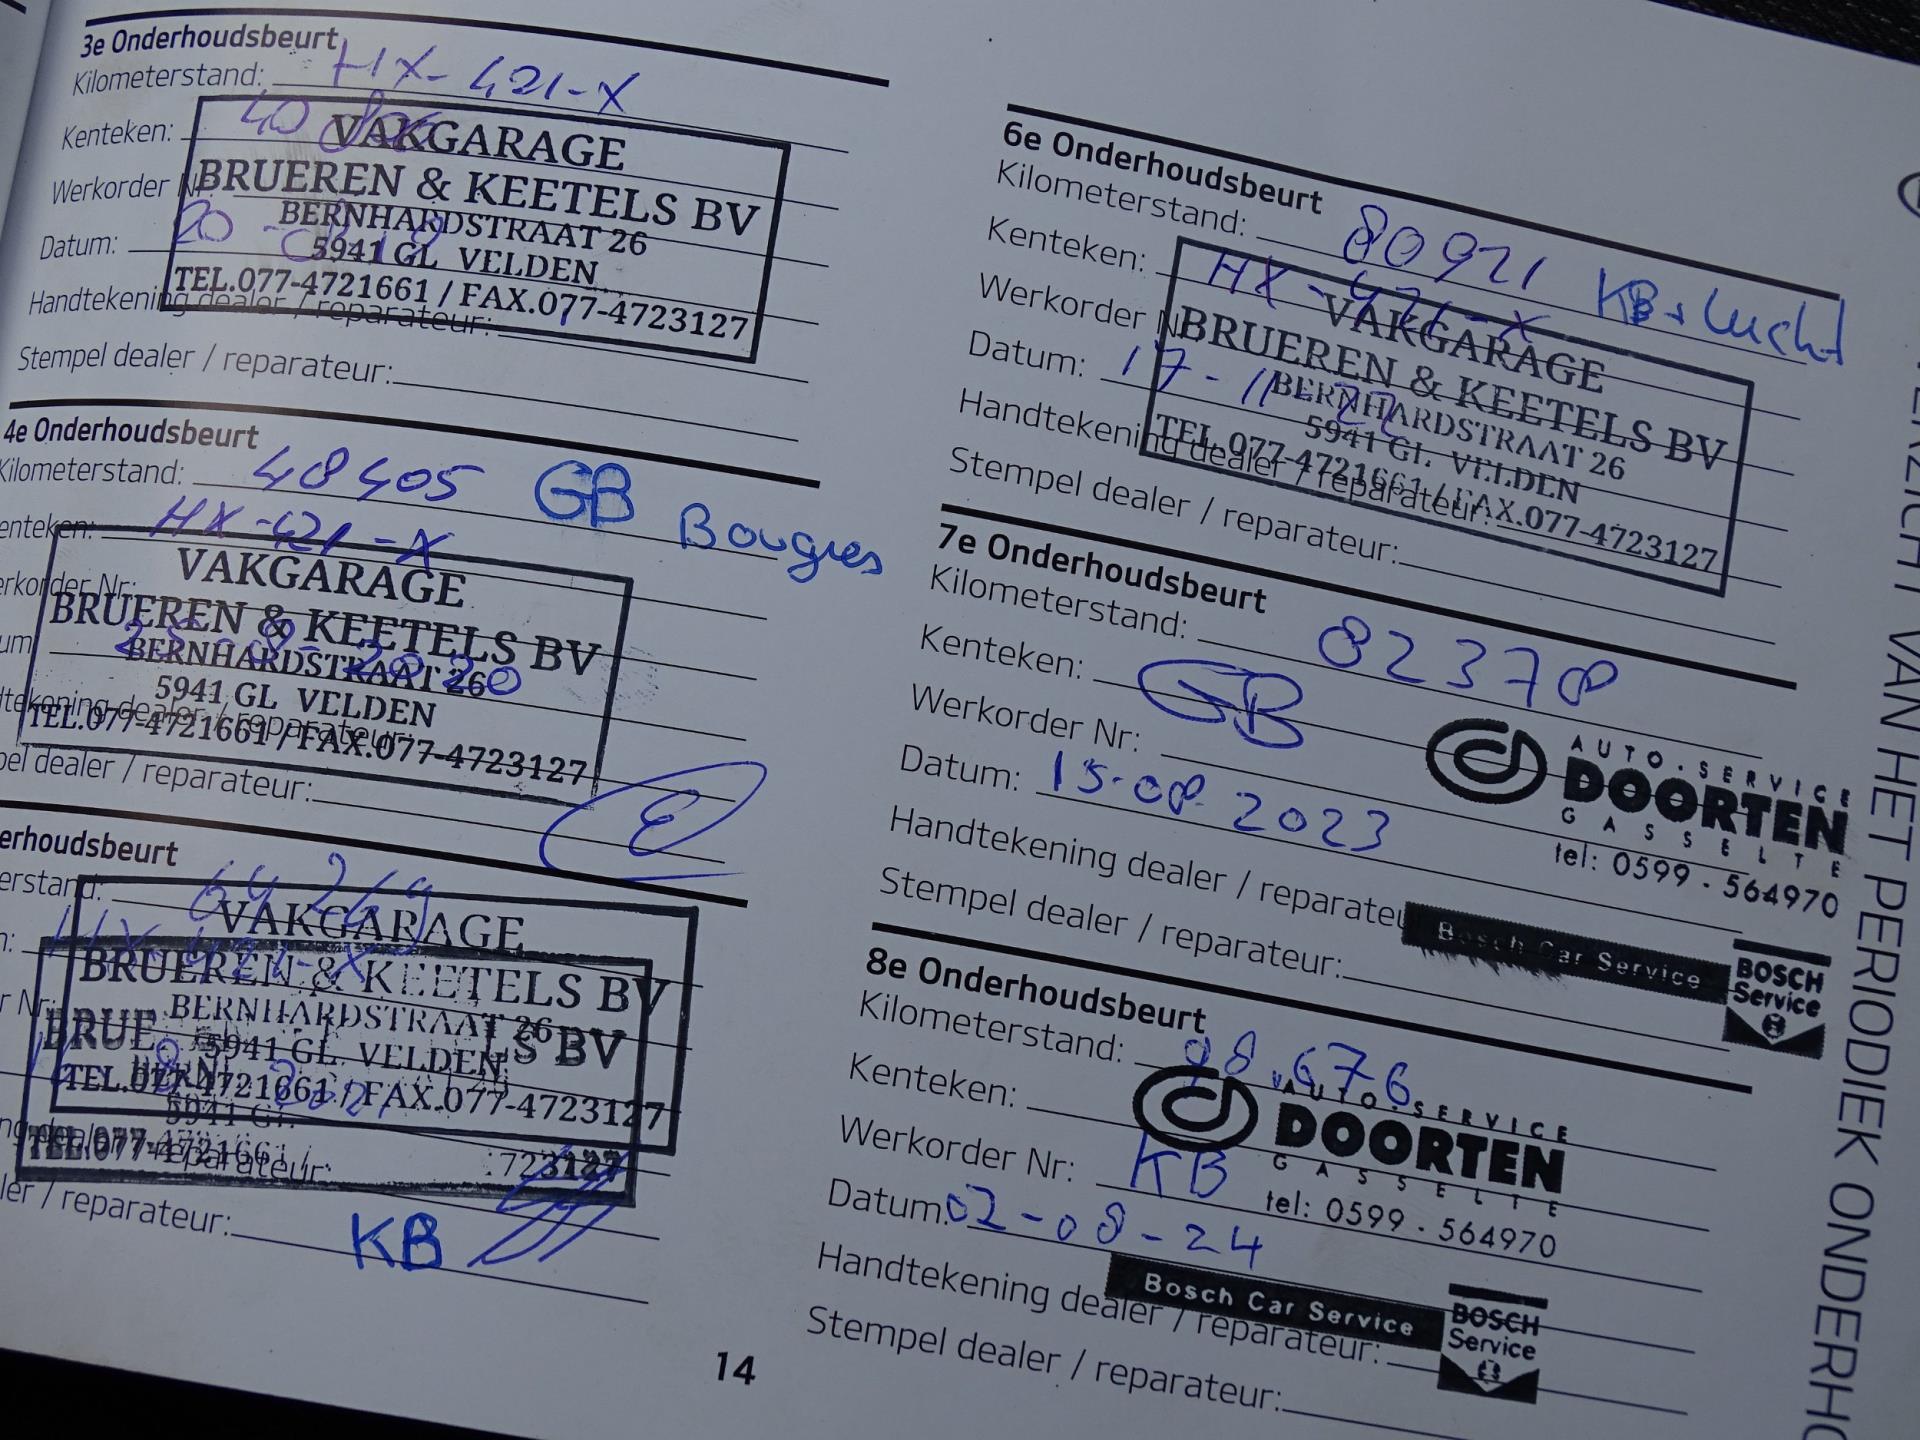 3e Onderhoudsbeurt
Kilometerstand: HX-421-X
Kenteken: 40
VAKGARAGE
Werkorder
BRUEREN & KEETELS BV
BERNHARDSTRAAT 26
Datum: 20
5941 GL VELDEN
TEL.077-4721661 / FAX.077-4723127
Handtekening dealer / reparateur:
Stempel dealer / reparateur:
4e Onderhoudsbeurt
Kilometerstand: 48405 GB Bougies
enteken: HX-421-X
VAKGARAGE
erkorder Nr:
BRUEREN & KEETELS BV
um 2020
BERNHARDSTRAAT 26
5941 GL VELDEN
dtekening dealer / reparateur:
TEL.077-4721661 / FAX.077-4723127
pel dealer / reparateur:
erhoudsbeurt
erstand: 64269
VAKGARAGE
n: HX-421-X
BRUEREN & KEETELS BV
BERNHARDSTRAAT 26
r Nr:
BRUE LS BV
5941 GL VELDEN
TEL.077-4721661 / FAX.077-4723127
5941 GL
TEL.077-4721661 / 723127
ng dealer / reparateur:
ler / reparateur: KB
14
6e Onderhoudsbeurt
Kilometerstand: 80921 KB + Lucht
Kenteken: HX-421-X
VAKGARAGE
Werkorder N
BRUEREN & KEETELS BV
Datum: 17-11-22
BERNHARDSTRAAT 26
5941 GL VELDEN
Handtekening dealer / reparateur:
TEL.077-4721661 / FAX.077-4723127
Stempel dealer / reparateur:
7e Onderhoudsbeurt
Kilometerstand: 82378
Kenteken: GB
Werkorder Nr:
AUTO.SERVICE
DOORTEN
GASSELTE
tel: 0599 - 564970
Datum: 15-08-2023
Handtekening dealer / reparateu
Bosch Car Service
BOSCH
Service
Stempel dealer / reparateur:
8e Onderhoudsbeurt
Kilometerstand: 98.676
Kenteken:
AUTO.SERVICE
DOORTEN
GASSELTE
tel: 0599 - 564970
Werkorder Nr: KB
Datum: 02-08-24
Bosch Car Service
BOSCH
Service
Handtekening dealer / reparateur:
Stempel dealer / reparateur:
VERZICHT VAN HET PERIODIEK ONDERHO